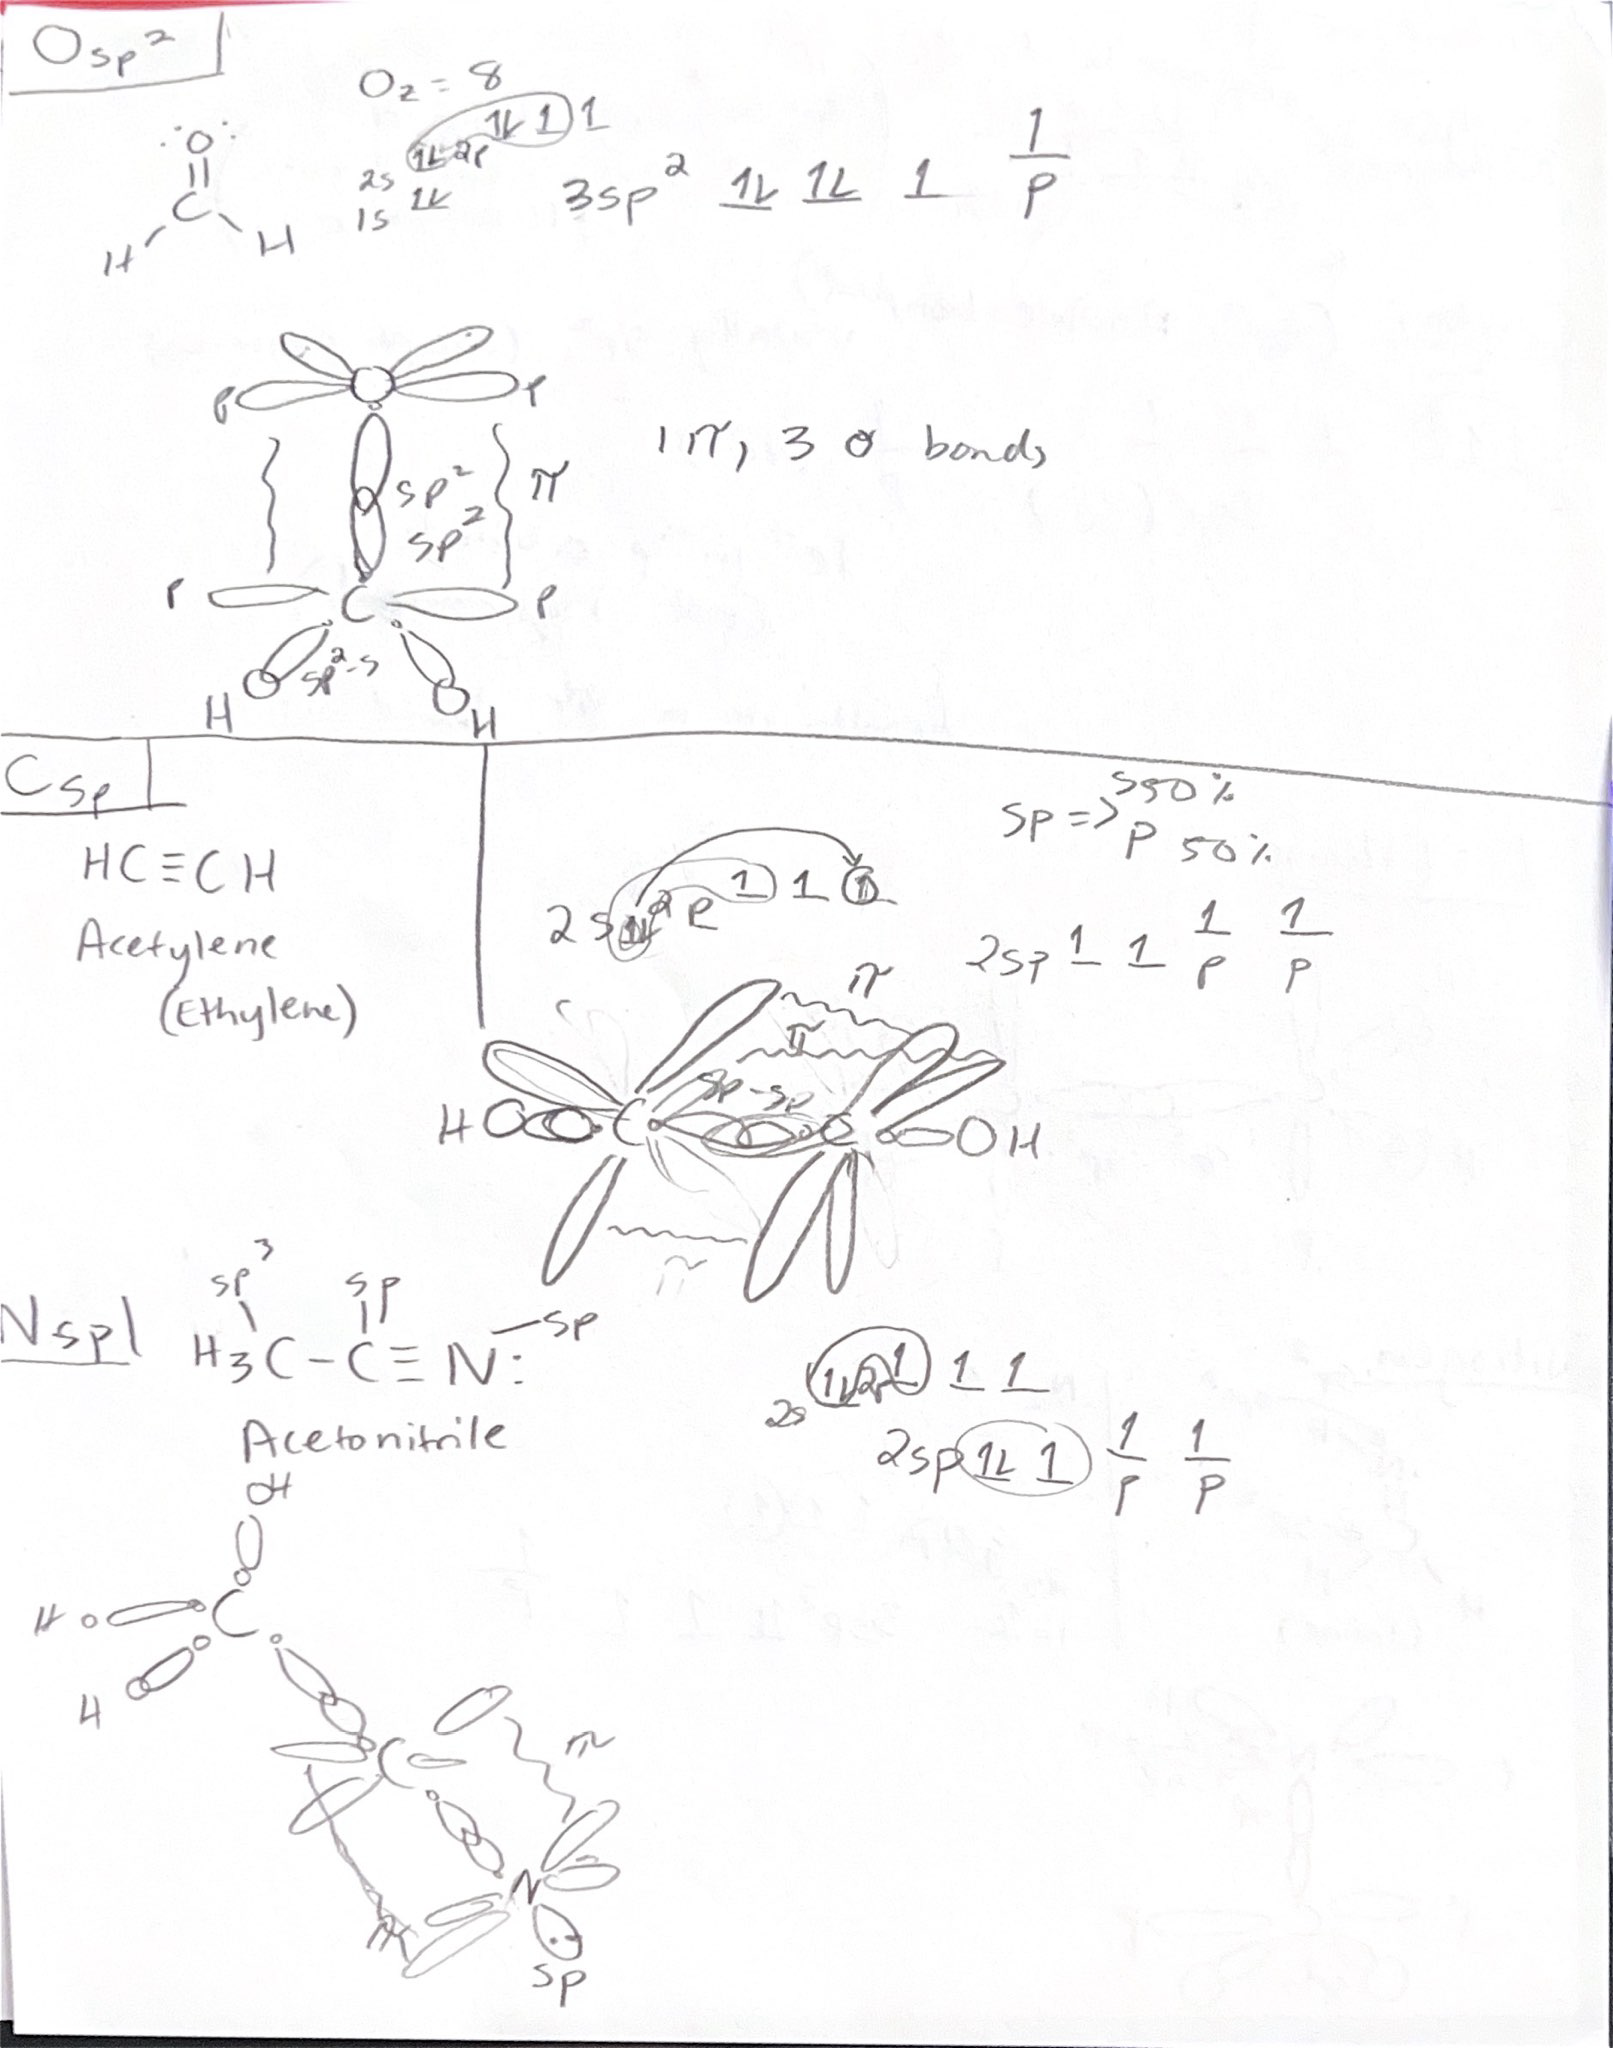 Osp²
O₂ = 8
:O:
||
C
H H
2p 1L 1 1
2s 1L
1s 1L
3sp² 1L 1L 1 1
p
P P
sp² π
sp²
1π, 3 σ bonds
P C P
sp²-s
H H
Csp
HC≡CH
Acetylene
(Ethylene)
sp => s 50%
p 50%
2s 1L 2p 1 1 1
2sp 1 1 1 1
p p
π
π
sp-sp
H C C H
π
Nsp
sp³ sp
H3C-C≡N: -sp
Acetonitrile
2s 1L 2p 1 1 1
2sp 1L 1 1 1
p p
H
H C
H
C π
N
π
sp